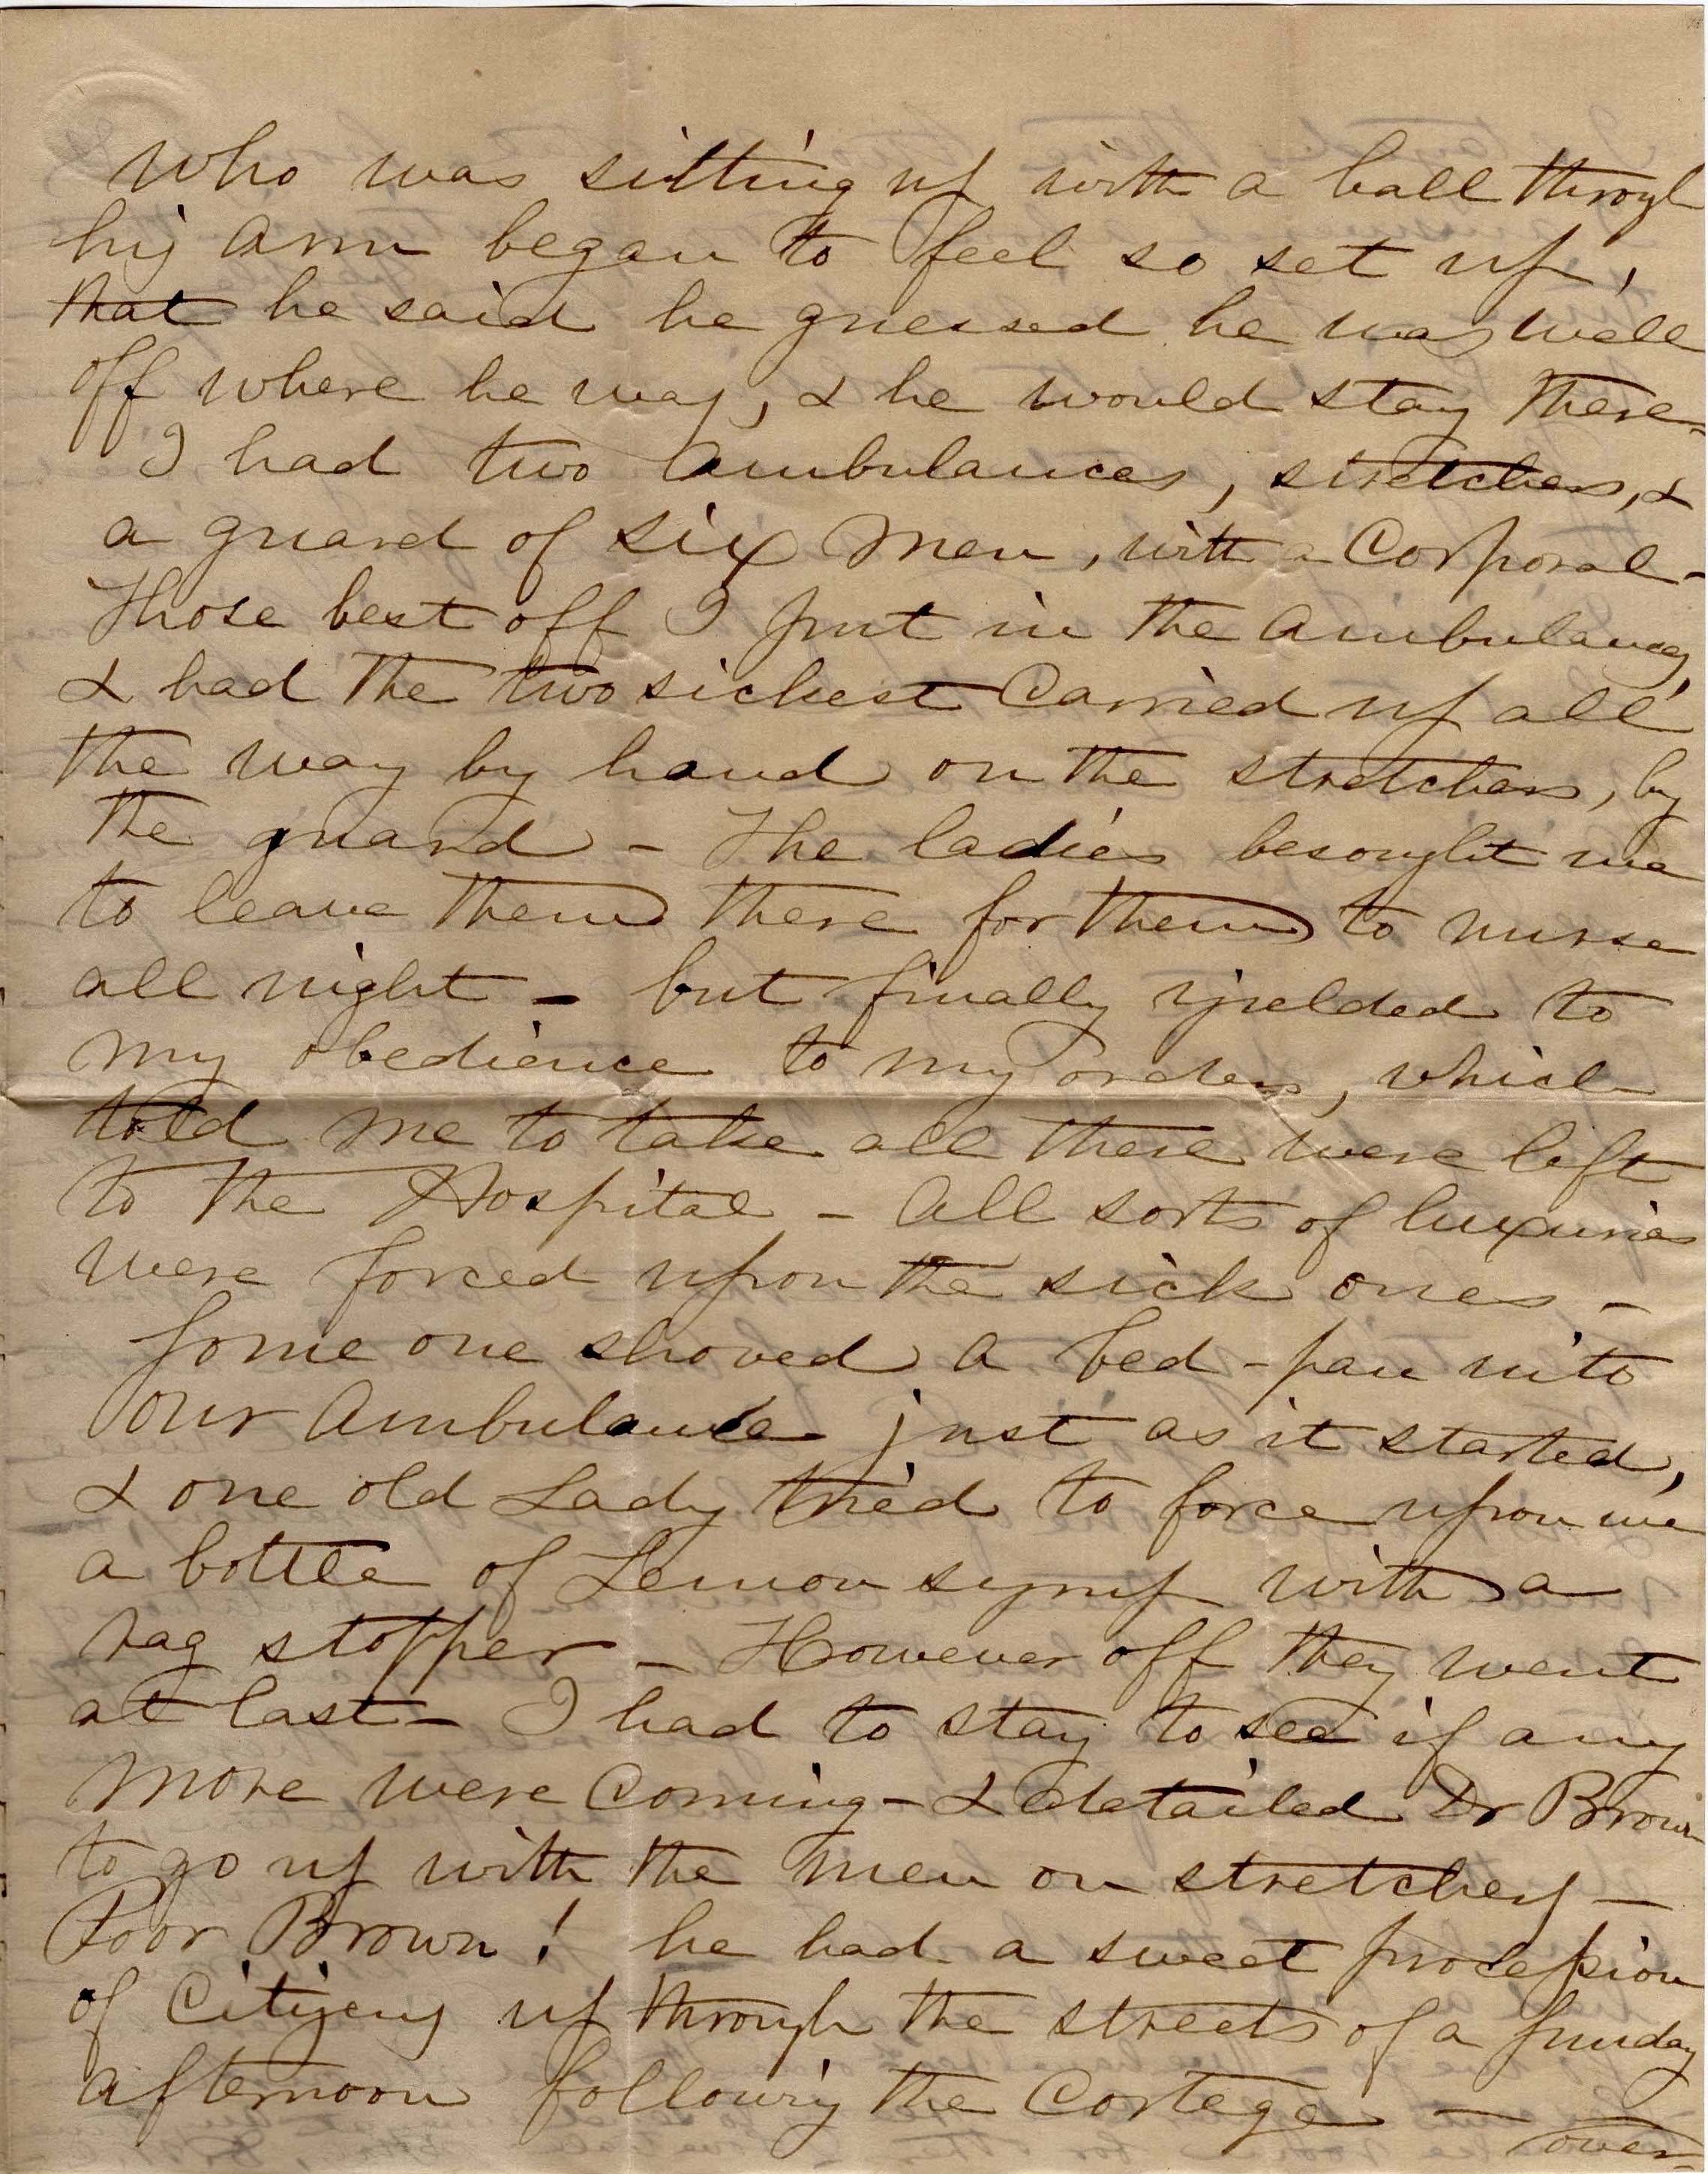 who was sitting up with a ball through
his arm began to feel so set up,
that he said he guessed he was well
off where he was, & he would stay there-
I had two ambulances, stretchers, &
a guard of six men, with a Corporal-
Those best off I put in the ambulances,
& had the two sickest carried up all
the way by hand on the stretchers, by
the guard - The ladies besought me
to leave them there for them to nurse
all night - but finally yielded to
my obedience to my orders, which
told me to take all there were left
to the Hospital - All sorts of luxuries
were forced upon the sick ones -
Some one shoved a bed-pan into
our ambulance just as it started,
& one old Lady tried to force upon me
a bottle of Lemon syrup with a
rag stopper - However off they went
at last - I had to stay to see if any
more were coming - & detailed Dr Brown
to go up with the men on stretchers -
Poor Brown! he had a sweet procession
of Citizens up through the streets of a Sunday
afternoon following the Cortege -
over-